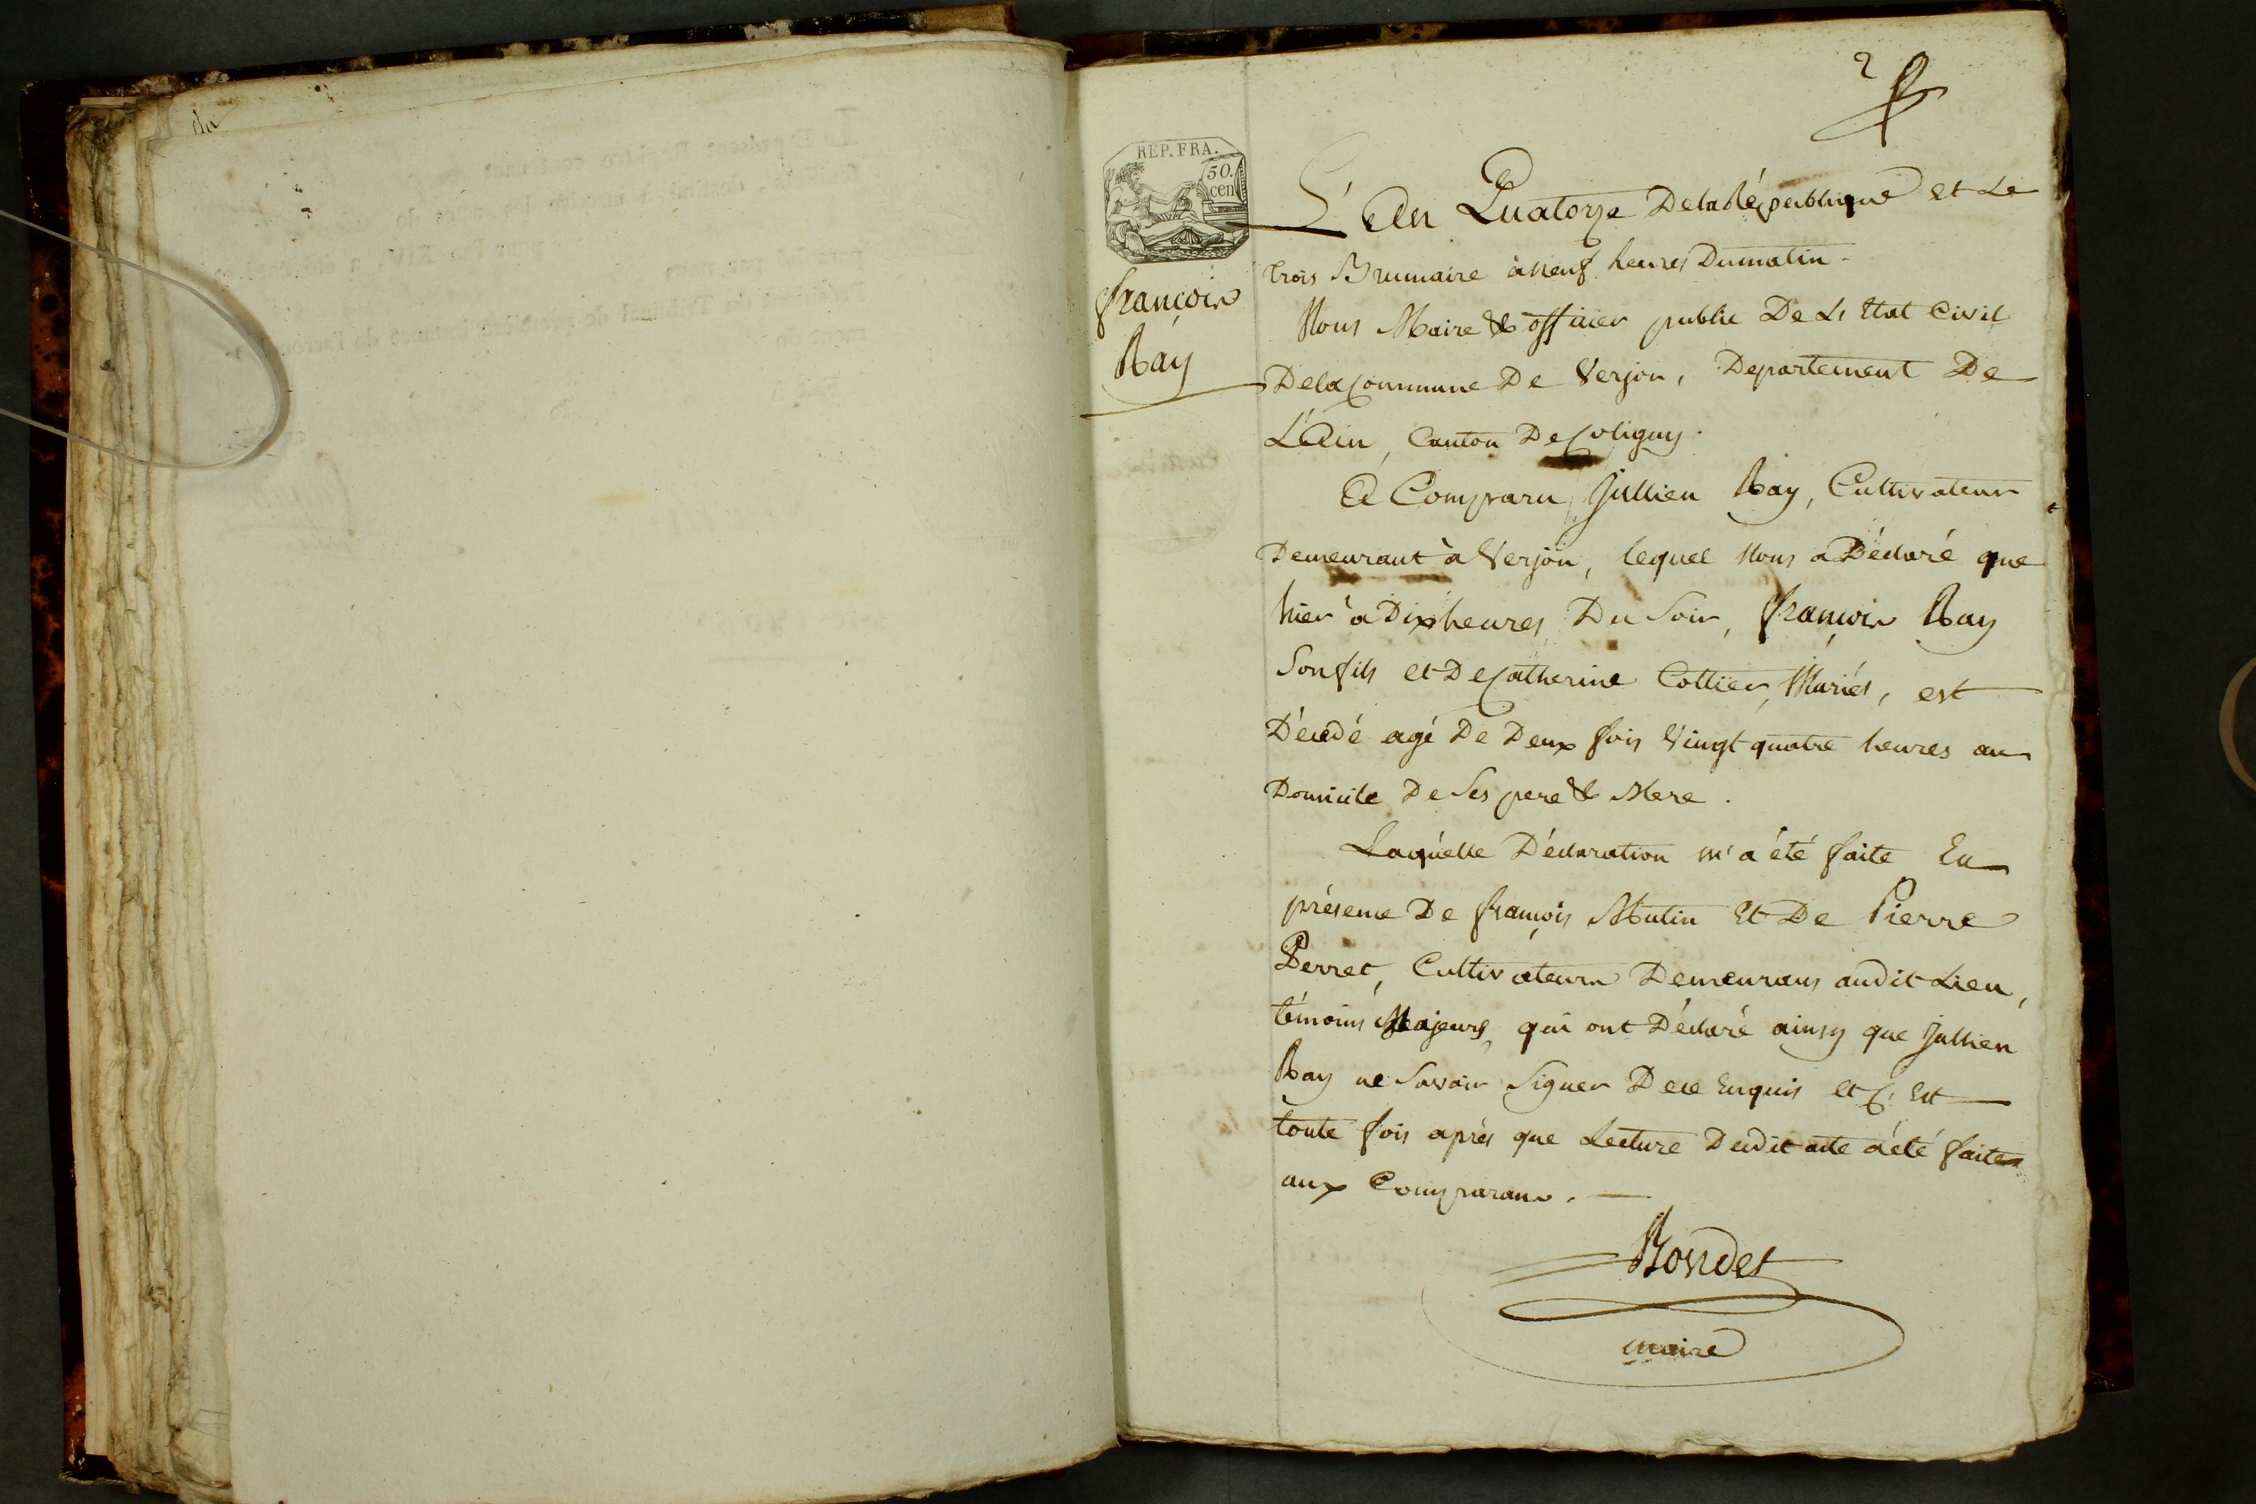 2
REP. FRA.
50.
cen
François
Ray
L'An Quatorze De la République et Le
trois Brumaire à neuf heures Du matin.
Nous Maire & officier public De L'Etat Civil
De la Commune De Verjon, Departement De
L'Ain, Canton De Coligny.
A Comparu Jullien Ray, Cultivateur
Demeurant à Verjon, lequel Nous a Déclaré que
hier à Dix heures Du Soir, François Ray
Son fils et De Catherine Cottier, Mariés, est
Décédé agé De Deux fois Vingt quatre heures au
Domicile De Ses pere & Mere.
Laquelle Déclaration m'a été faite En
présence De François Mutin Et De Pierre
Perret, Cultivateurs Demeurans audit Lieu,
témoins Majeurs, qui ont Déclaré ainsy que Jullien
Ray ne Savoir Signer De ce Enquis et C. Est
toute fois après que Lecture Dudit acte a été faite
aux Comparans.
Bondet
maire